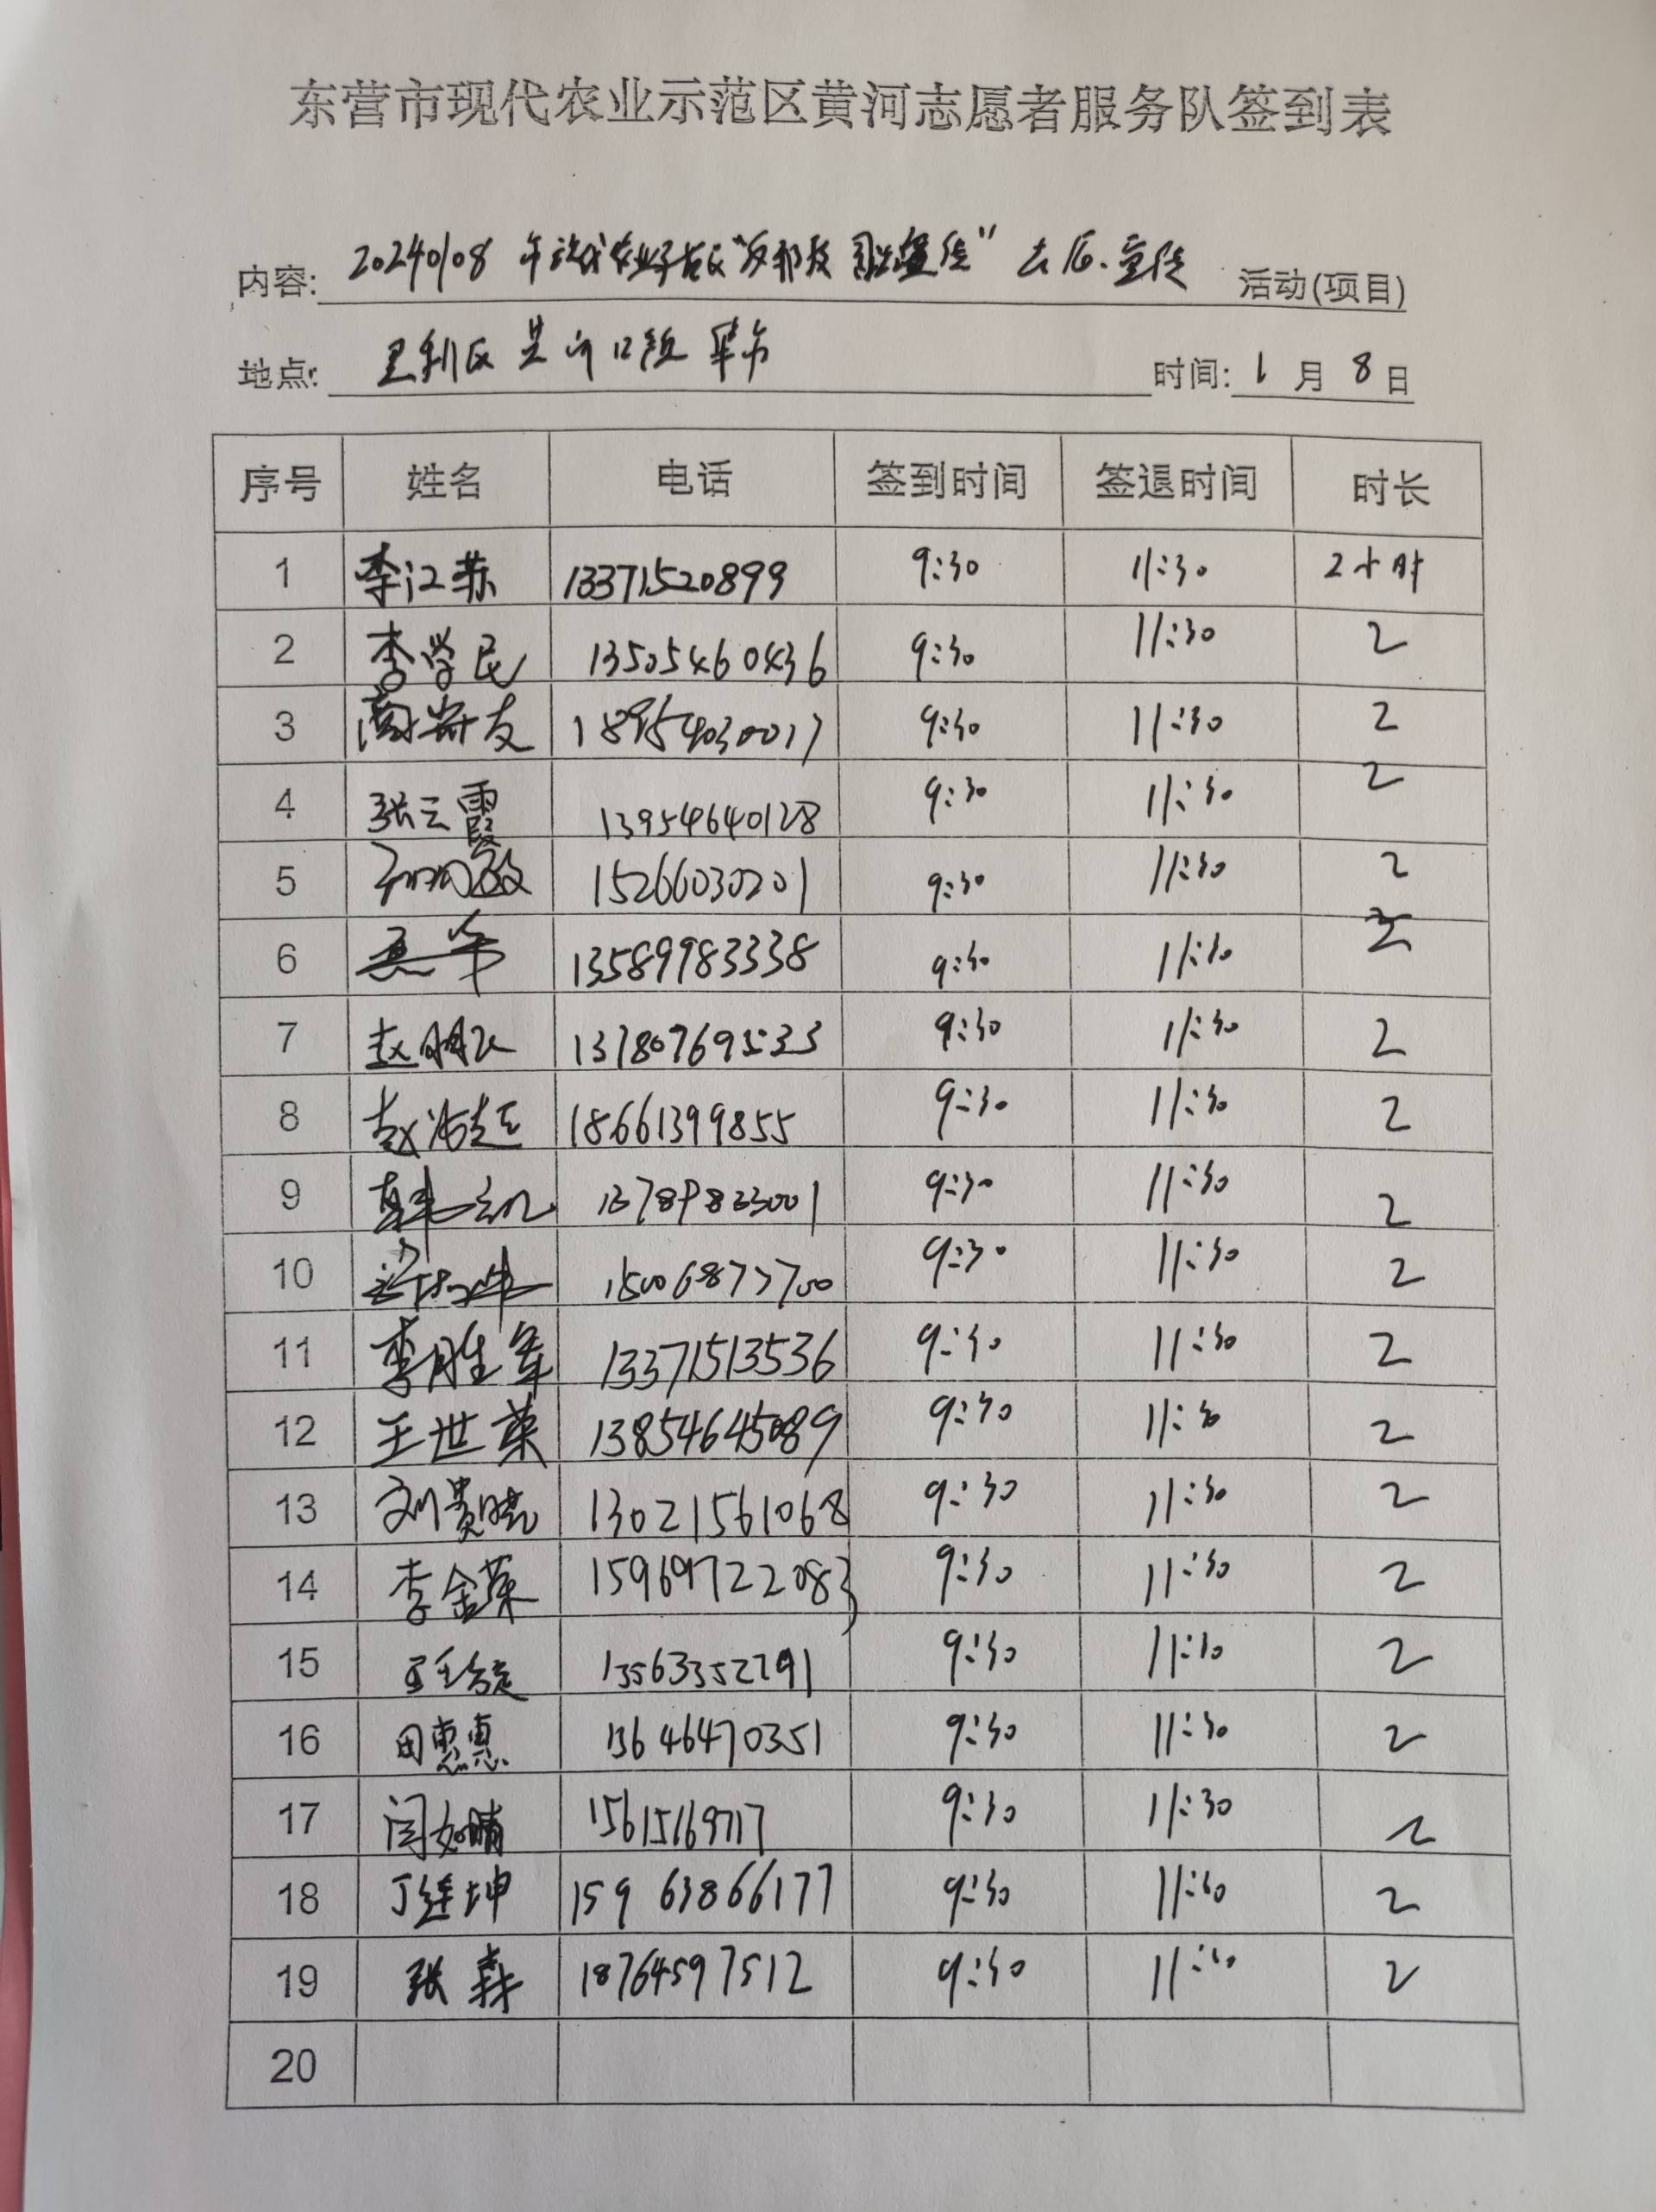 东营市现代农业示范区黄河志愿者服务队签到表
内容: 20240108 宣传 活动(项目)
地点: 垦利区黄河口镇 时间: 1 月 8 日
序号 姓名 电话 签到时间 签退时间 时长
1 李江苏 13371520899 9:30 11:30 2小时
2 李学民 13505460436 9:30 11:30 2
3 18954030017 9:30 11:30 2
4 张云霞 13954640128 9:30 11:30 2
5 15266030201 9:30 11:30 2
6 13589983338 9:30 11:30 2
7 赵 13780769533 9:30 11:30 2
8 赵浩廷 18661399855 9:30 11:30 2
9 9:30 11:30 2
10 15006877700 9:30 11:30 2
11 李胜军 13371513536 9:30 11:30 2
12 王世荣 13854645089 9:30 11:30 2
13 刘贵晓 13021561068 9:30 11:30 2
14 李金荣 15969722083 9:30 11:30 2
15 13563352291 9:30 11:30 2
16 田惠惠 13646470351 9:30 11:30 2
17 闫如晴 15615169717 9:30 11:30 2
18 丁连坤 15963866177 9:30 11:30 2
19 张森 18764597512 9:30 11:30 2
20